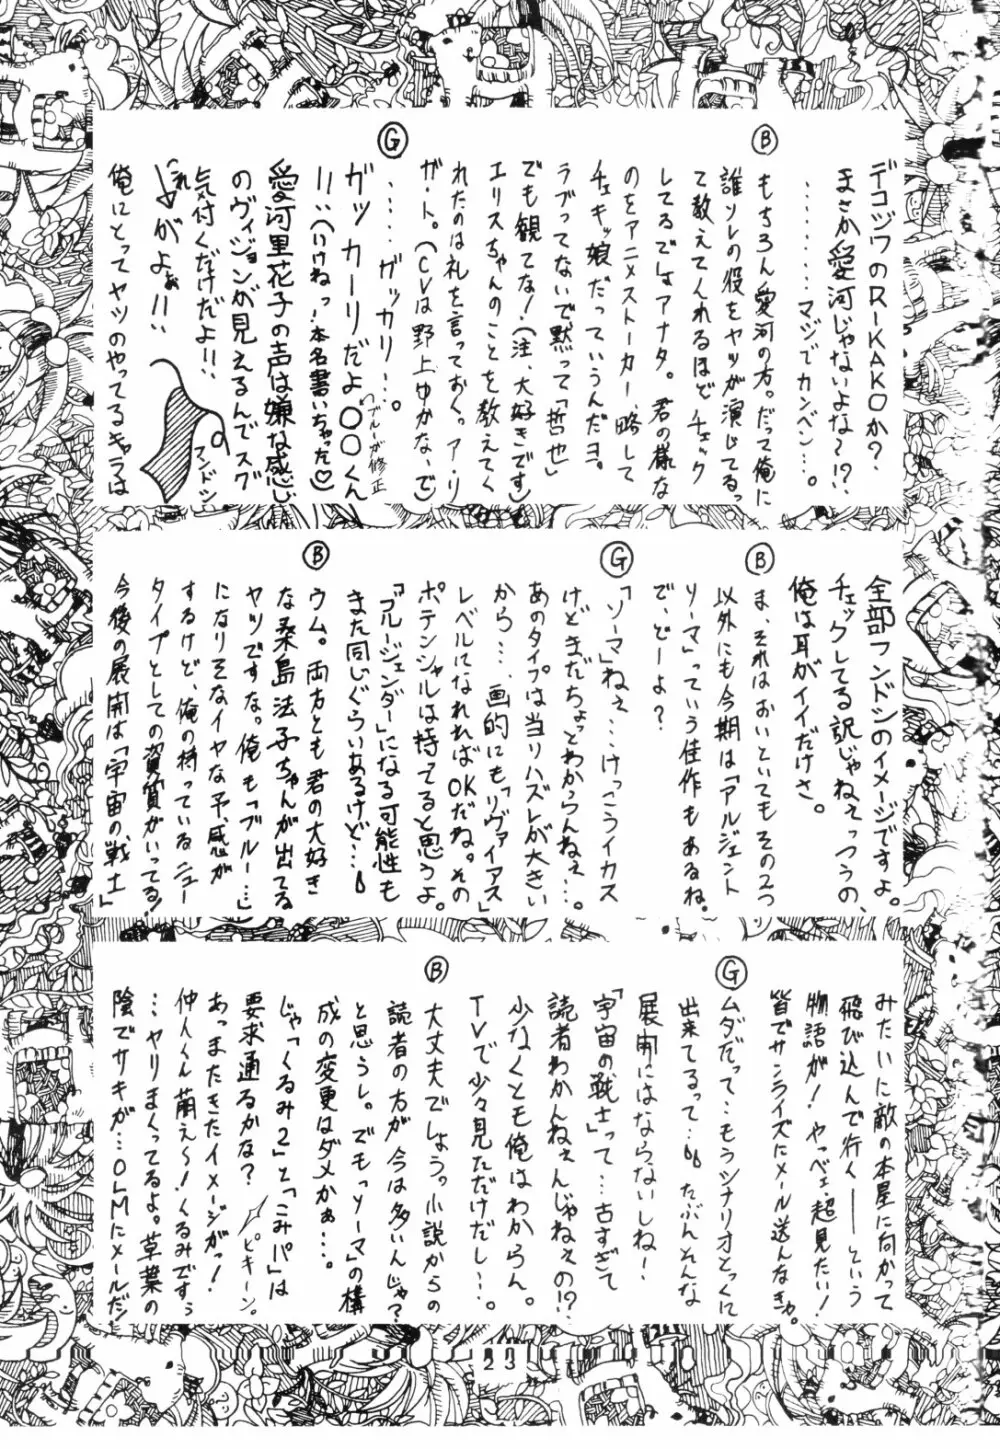 デコジワのRIKAKOか?
まさか愛河じゃないよな?!?
………マジでカンベン…。
Ⓑ
もちろん愛河の方。だって俺に
誰ソレの役をヤツが演じてるっ
て教えてくれるほどチェック
してるでしょアナタ。君の様な
のをアニメストーカー、略して
チェキッ娘だっていうんだヨ。
ラブってないで黙って「哲也」
でも観てな!(注、大好きです)
エリスちゃんのことを教えてく
れたのは礼を言っておくっ。ア・リ
ガ・ト。(CVは野上ゆかな、で)
Ⓖ
……ガッカリ…。
ガッカーリだよ○○くん
ブルーが修正
!!(いけねっ!本名書いちゃった♡)
愛河里花子の声は嫌な感じ
のヴィジョンが見えるんでスグ
気付くだけだよ!!
アンドン
これ
がよぉ!!
俺にとってヤツのやってるキャラは
全部フンドシのイメージですよ。
チェックしてる訳じゃねぇっつうの、
俺は耳がイイだけさ。
Ⓑ
ま、それはおいといてもその2つ
以外にも今期は「アルジェント
ソーマ」っていう佳作もあるね。
で、どーよ?
Ⓖ
「ソーマ」ねぇ…けっこうイカス
けどまだちょっとわからんねぇ…。
あのタイプは当リハズレが大きい
から…、画的にも「リヴァイアス」
レベルになれればOKだね。その
ポテンシャルは持ってると思うよ。
「ブルージェンダー」になる可能性も
また同じぐらいあるけど…。
Ⓑ
ウム。両方とも君の大好き
な桑島法子ちゃんが出てる
ヤツですな。俺も「ブルー…」
になりそなイヤな予感が
するけど、俺の持っているニュー
タイプとしての資質がいってる!
今後の展開は「宇宙の戦士」
みたいに敵の本星に向かって
飛び込んで行く――という
物語が!やっべェ超見たい!
皆でサンライズにメール送んなきゃ。
Ⓖ
ムダだって…もうシナリオとっくに
出来てるって…。たぶんそんな
展開にはならないしねー
「宇宙の戦士」って…古すぎて
読者わかんねぇんじゃねぇの!?
少なくとも俺はわからん。
TVで少々見ただけだし…。
Ⓑ
大丈夫でしょう。小説からの
読者の方が今は多いんじゃ?
と思うし。でも「ソーマ」の構
成の変更はダメかぁ…。
じゃ「くるみ2」と「こみパ」は
要求通るかな?
ピキーン。
あっまたきたイメージがっ!
仲人くん萌え〜!くるみですぅ
…ヤリまくってるよ。草葉の
陰でサキが…OLMにメールだ!
23